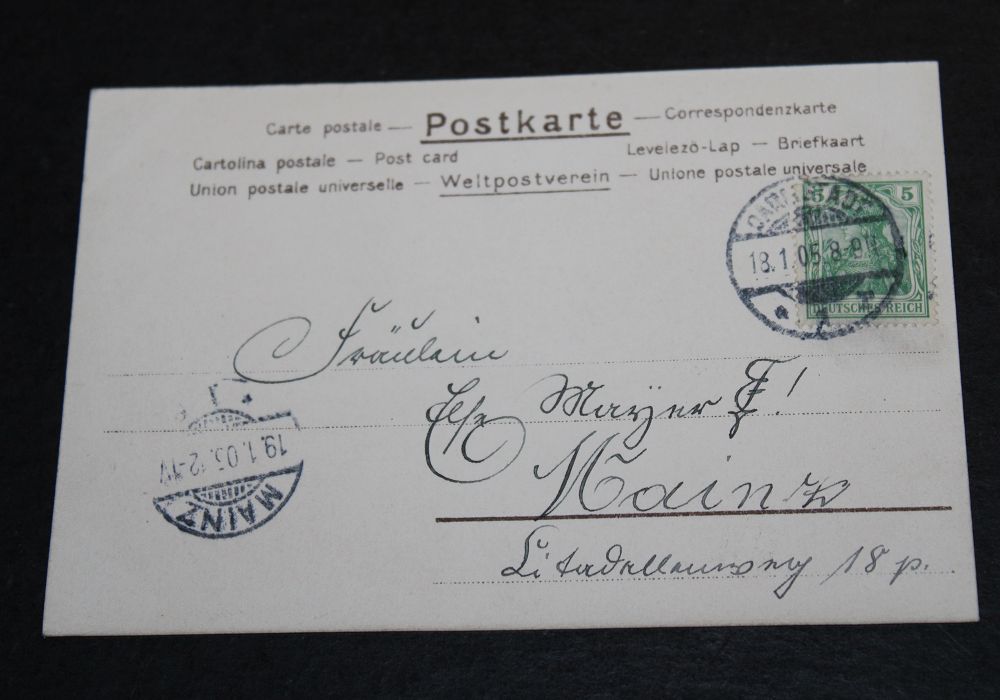 Carte postale — Postkarte — Correspondenzkarte
Cartolina postale — Post card Levelezö-Lap — Briefkaart
Union postale universelle — Weltpostverein — Unione postale universale
DARMSTADT
18.1.05. 8-9N
5 5
DEUTSCHES REICH
Fräulein
Else Mayer
Mainz
Citadellenweg 18 p.
19.1.05. 12-1V
MAINZ